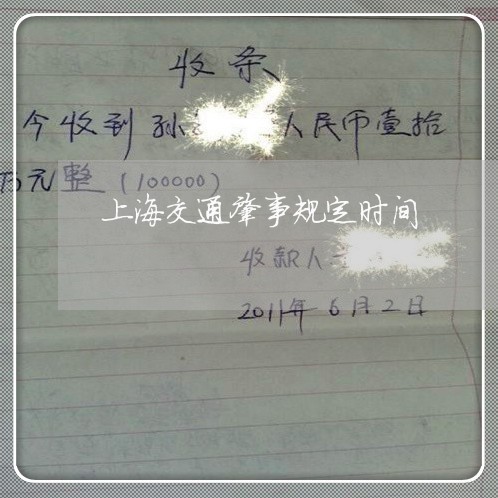 收条
今收到孙 人民币壹拾
万元整(100000)
上海交通肇事规定时间
收款人
2011年6月2日